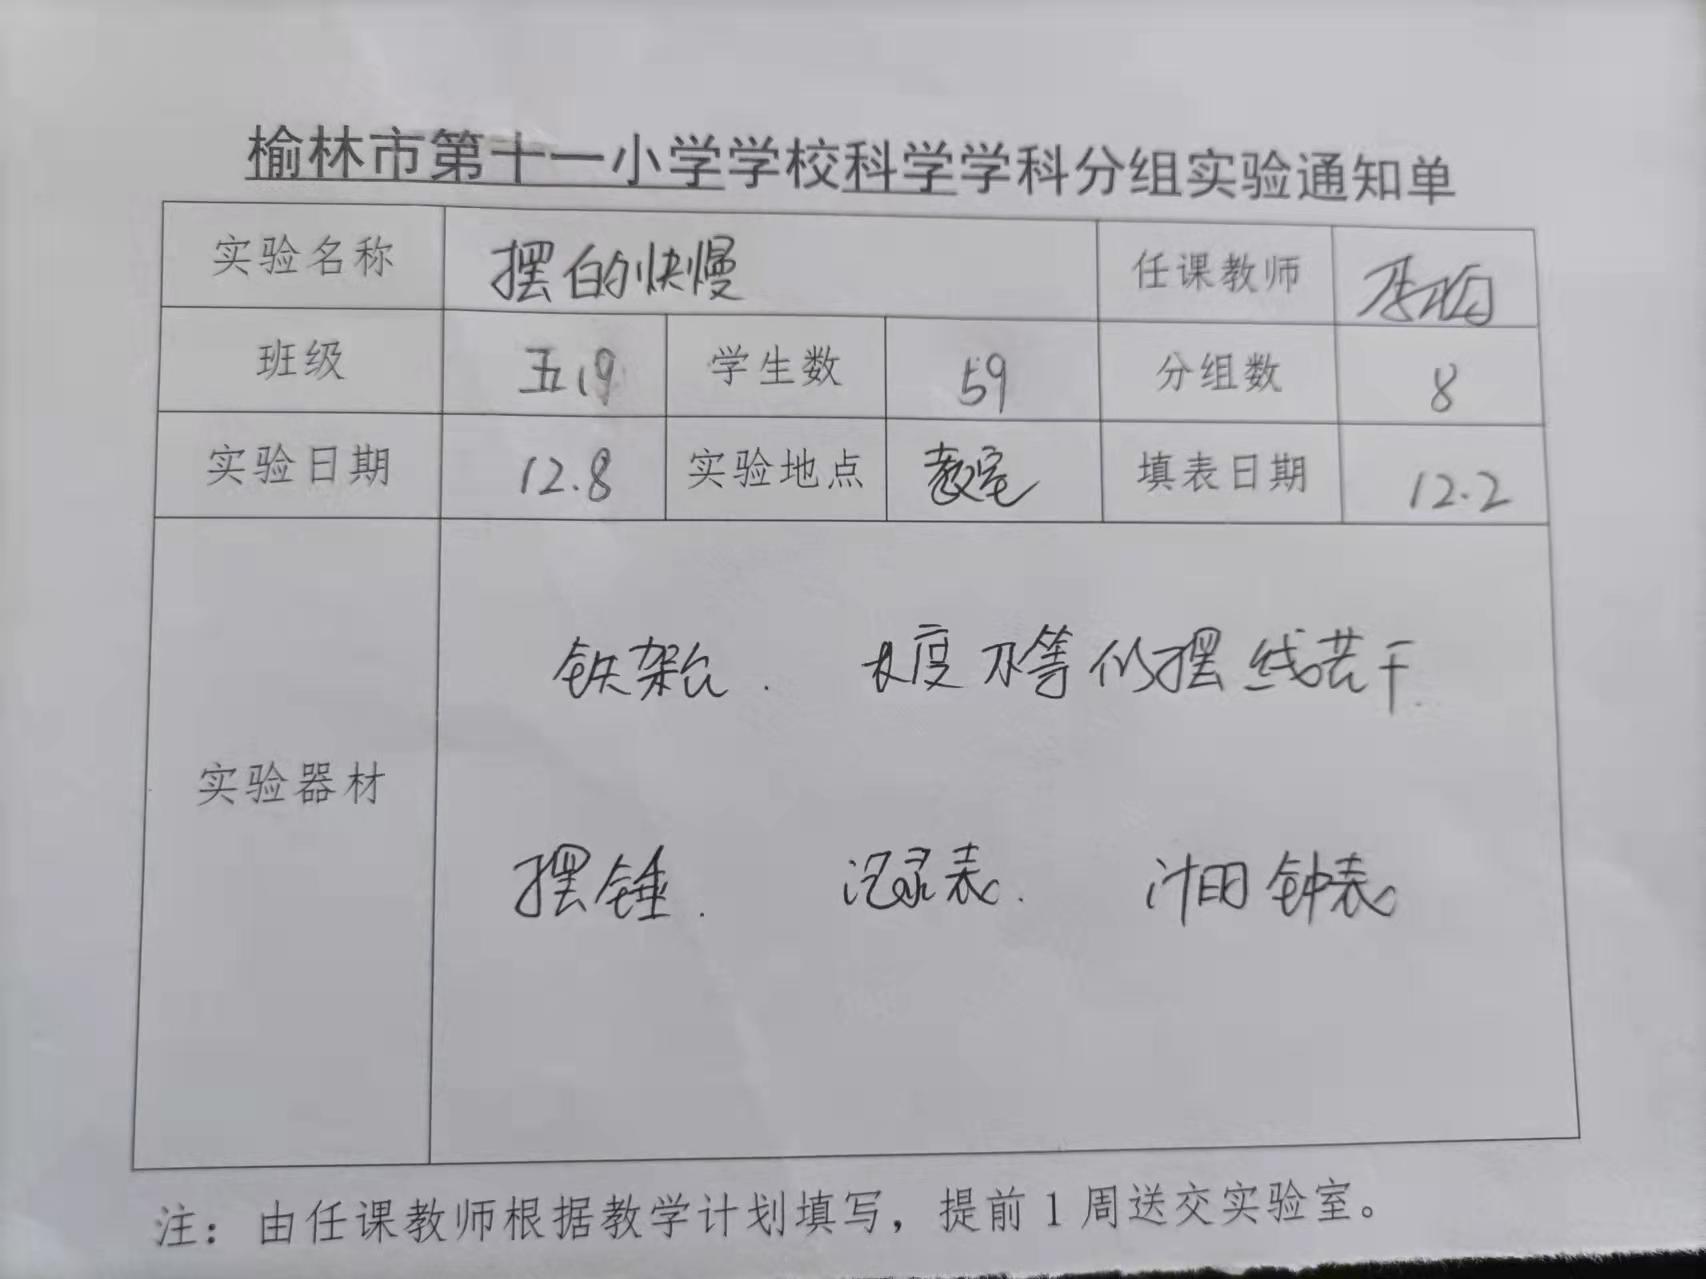 榆林市第十一小学学校科学学科分组实验通知单
实验名称 摆的快慢 任课教师
班级 五19 学生数 59 分组数 8
实验日期 12.8 实验地点 教室 填表日期 12.2
铁架台. 长度不等的摆线若干.
实验器材
摆锤. 记录表. 计时钟表
注：由任课教师根据教学计划填写，提前1周送交实验室。